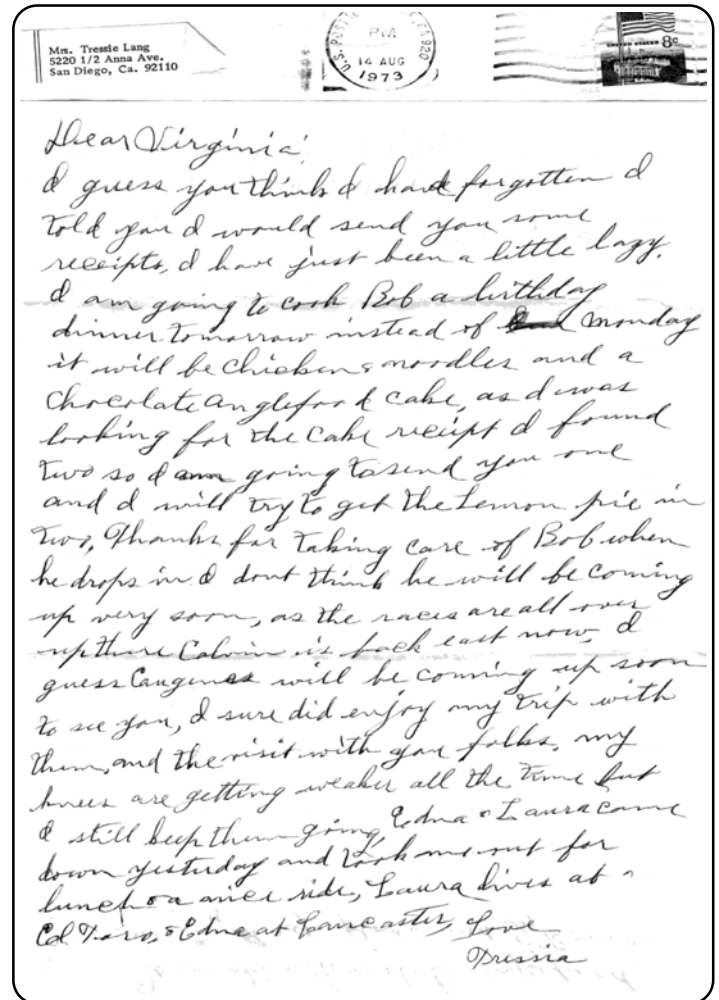 Mrs. Tressie Lang
5220 1/2 Anna Ave.
San Diego, Ca. 92110
U.S. POSTAL
CA 920
PM
14 AUG
1973
UNITED STATES 8c
Dear Virginia
I guess you think I have forgotten I
told you I would send you some
receipts, I have just been a little lazy.
I am going to cook Bob a birthday
dinner tomorrow instead of Monday
it will be chicken & noodles and a
chocolate anglefood cake, as I was
looking for the cake receipt I found
two so I am going to send you one
and I will try to get the Lemon pie in
two, Thanks for taking care of Bob when
he drops in I dont think he will be coming
up very soon, as the races are all over
up there Calvin is back east now, I
guess will be coming up soon
to see you, I sure did enjoy my trip with
them, and the visit with you folks, my
knees are getting weaker all the time but
I still keep them going, Edna & Laura came
down yesterday and took me out for
lunch & a nice ride, Laura lives at
& Edna at Lancaster, Love
Tressia